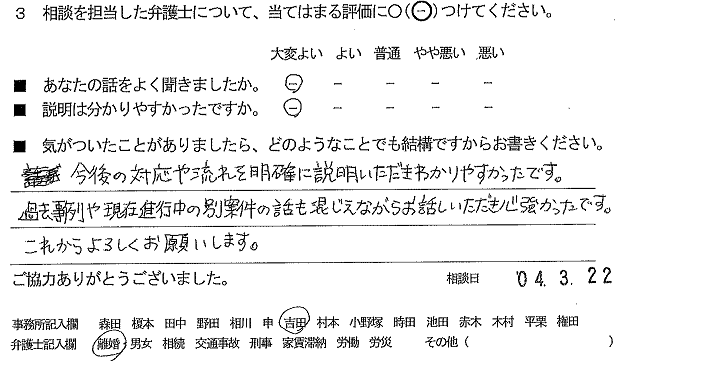 3 相談を担当した弁護士について、当てはまる評価に○(㊀)つけてください。
大変よい よい 普通 やや悪い 悪い
■ あなたの話をよく聞きましたか。 ㊀ － － － －
■ 説明は分かりやすかったですか。 ㊀ － － － －
■ 気がついたことがありましたら、どのようなことでも結構ですからお書きください。
今後の対応や流れを明確に説明いただきわかりやすかったです。
過去事例や現在進行中の別案件の話も混じえながらお話しいただき心強かったです。
これからよろしくお願いします。
ご協力ありがとうございました。 相談日 '04.3.22
事務所記入欄 森田 榎本 田中 野田 相川 申 吉田 村本 小野塚 時田 池田 赤木 木村 平栗 権田
弁護士記入欄 離婚 男女 相続 交通事故 刑事 家賃滞納 労働 労災 その他( )